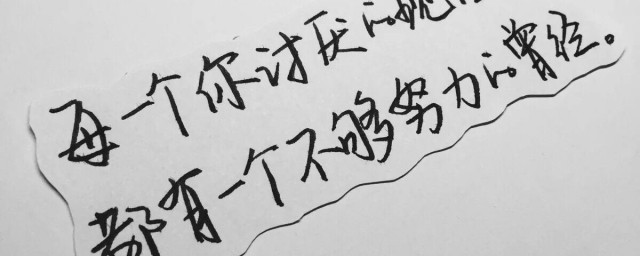 每一个你讨厌的现
都有一个不够努力的曾经。